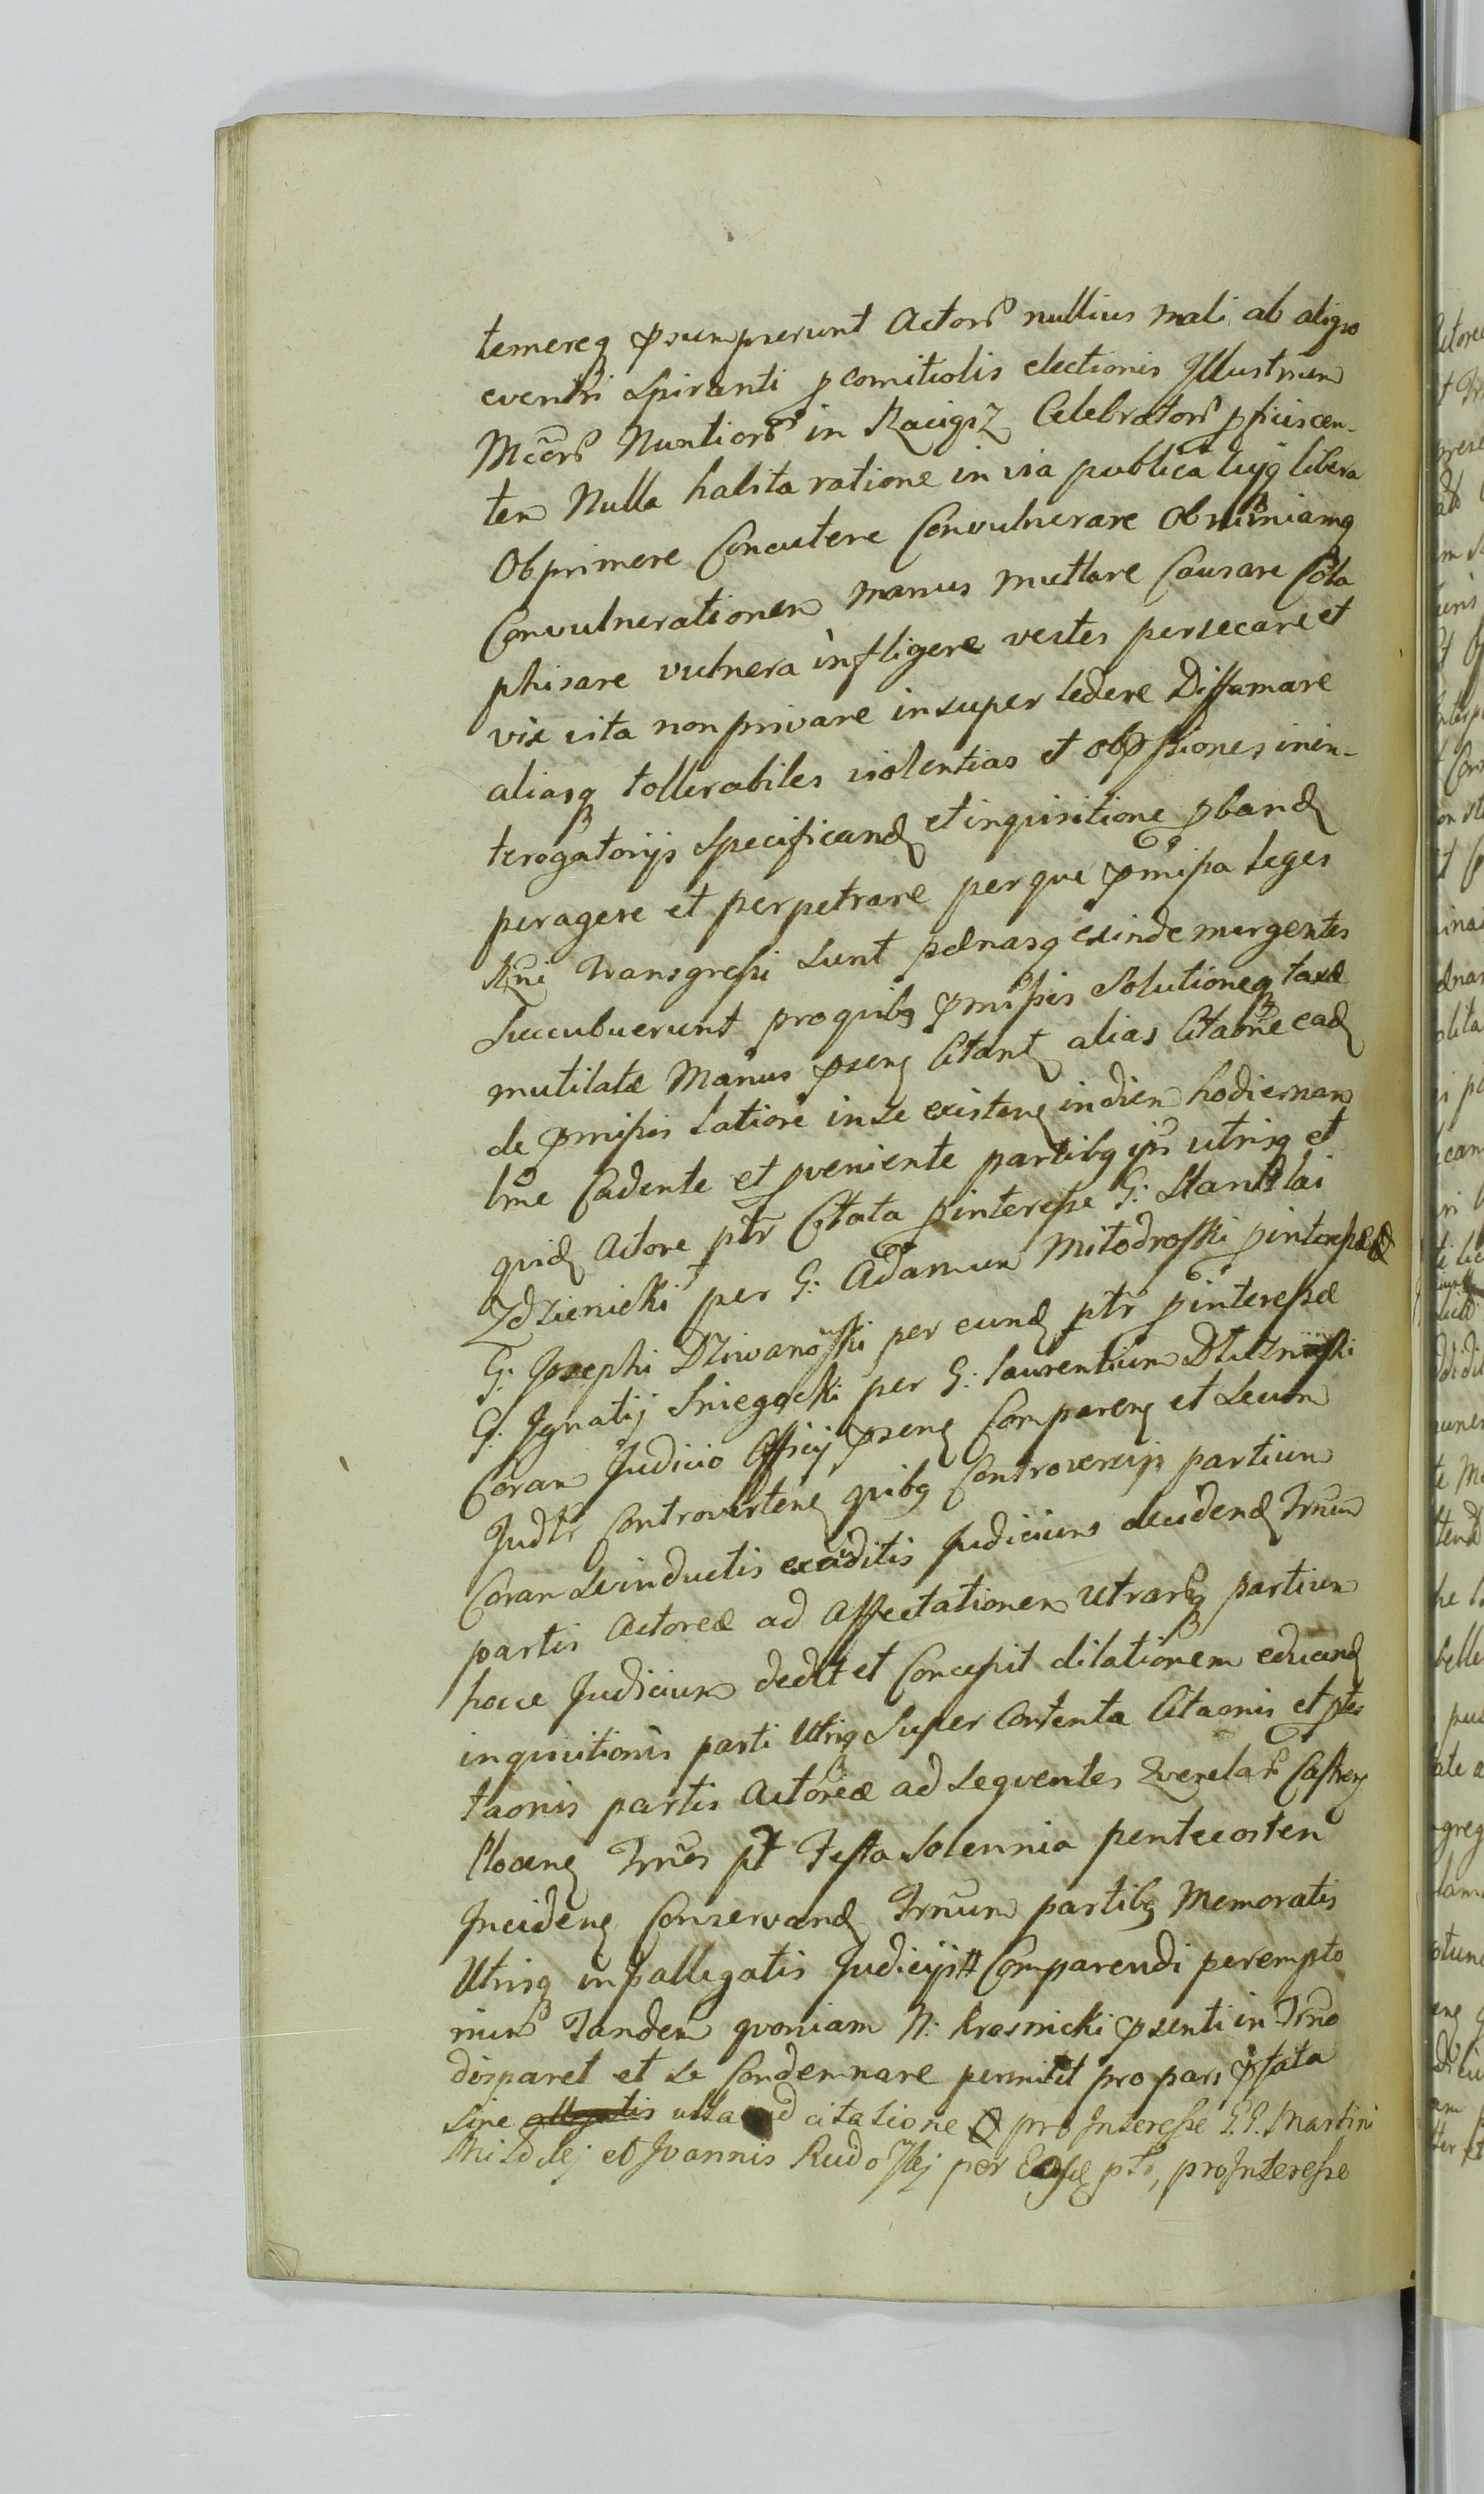 temereq̃ p̃sumpserunt Actorẽ nullius mali ab aliquo
eventu spiranti p comitiolis electionis Illustrium
Mccorũ Nuntiorũ in Raciąż Celebratorũ pficiscen-
tem Nulla habita ratione in via publica cuiq̃ libera
Obprimere Concutere Convulnerare Ob nimiamq̃
Convulnerationem manus mutilare Causare Cola
phisare vulnera infligere vestes persecare et
vix vita non privare insuper ledere Diffamare
aliasq̃ tollerabiles violentias et obp̃ssiones in in-
terogatorijs Specificand et inquisitione pband
peragere et perpetrare per que p̃missa leges
Rni transgressi sunt pænasq̃ exinde mergentes
Succubuerunt pro quibq̃ p̃missis Solutioneq̃ taxæ
mutilatæ Manus p̃sen Citant alias Citaone ead
de p̃missis latiore in se existen in diem hodiernam
lme Cadente et pveniente partibq̃ ip̃is utrisq̃ et
quid Actore ptr Citata p interesse G: Stanislai
Zdzienicki per G: Adamum Młodroski p interesse
G: Josephi Dziwanowski per eund ptr p interesse
G: Ignatij Sniegocki per G: Laurentium Dłużniewski
Coram Judicio Officij p̃sen Comparen et Secum
Judtr Controverten quibq̃ Controversijs partium
Coram se inductis exauditis Judicium decidend Trnum
partis Actoreæ ad Affectationem Utrarũq̃ partium
hocce Judicium dedit et Concessit dilationem educend
inquisitionis parti Utriq̃ Super Contenta Citaonis et ptes
taonis partis Actoreæ ad sequentes Querelarũ Castren
Plocen Trnos pt Festa Solennia pentecosten
Inciden Conservand Trnum partibq̃ Memoratis
Utrisq̃ in pallegatis Judicijs # Comparendi perempto
rium Tandem quoniam N: Krosnicki p̃senti in Trno
disparet et se Condemnare permittit pro pars p̃fata
sine allegatis ulla ad citatione pro Interesse G.G. Martini
et Joannis Rudowskj per ptr, pro Interesse